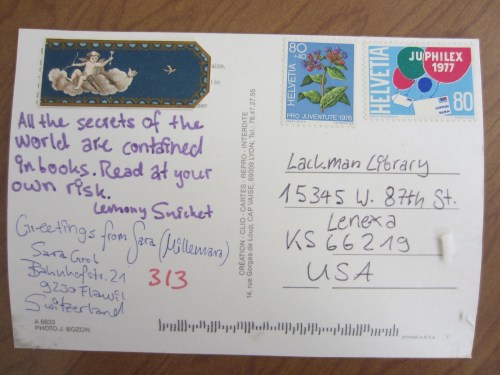 All the secrets of the
world are contained
in books. Read at your
own risk.
Lemony Snicket
Greetings from Sara (Millemara)
Sara Groh
Bahnhofstr. 21
9230 Flawil
Switzerland
313
A 6603
PHOTO J. BOZON
CREATION - CLIO - CARTES - REPRO - INTERDITE
14, rue Gorges de Loup, CAP VAISE, 69009 LYON, Tél. 78.47.27.55
80
+40
HELVETIA
PRO JUVENTUTE 1976
JUPHILEX
1977
HELVETIA
80
Lackman Library
15345 W. 87th St.
Lenexa
KS 66219
USA